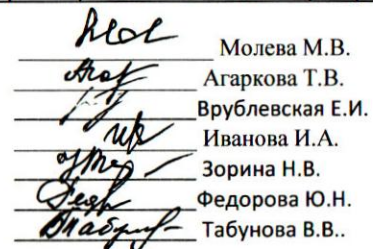 Молева М.В.
Агаркова Т.В.
Врублевская Е.И.
Иванова И.А.
Зорина Н.В.
Федорова Ю.Н.
Табунова В.В..